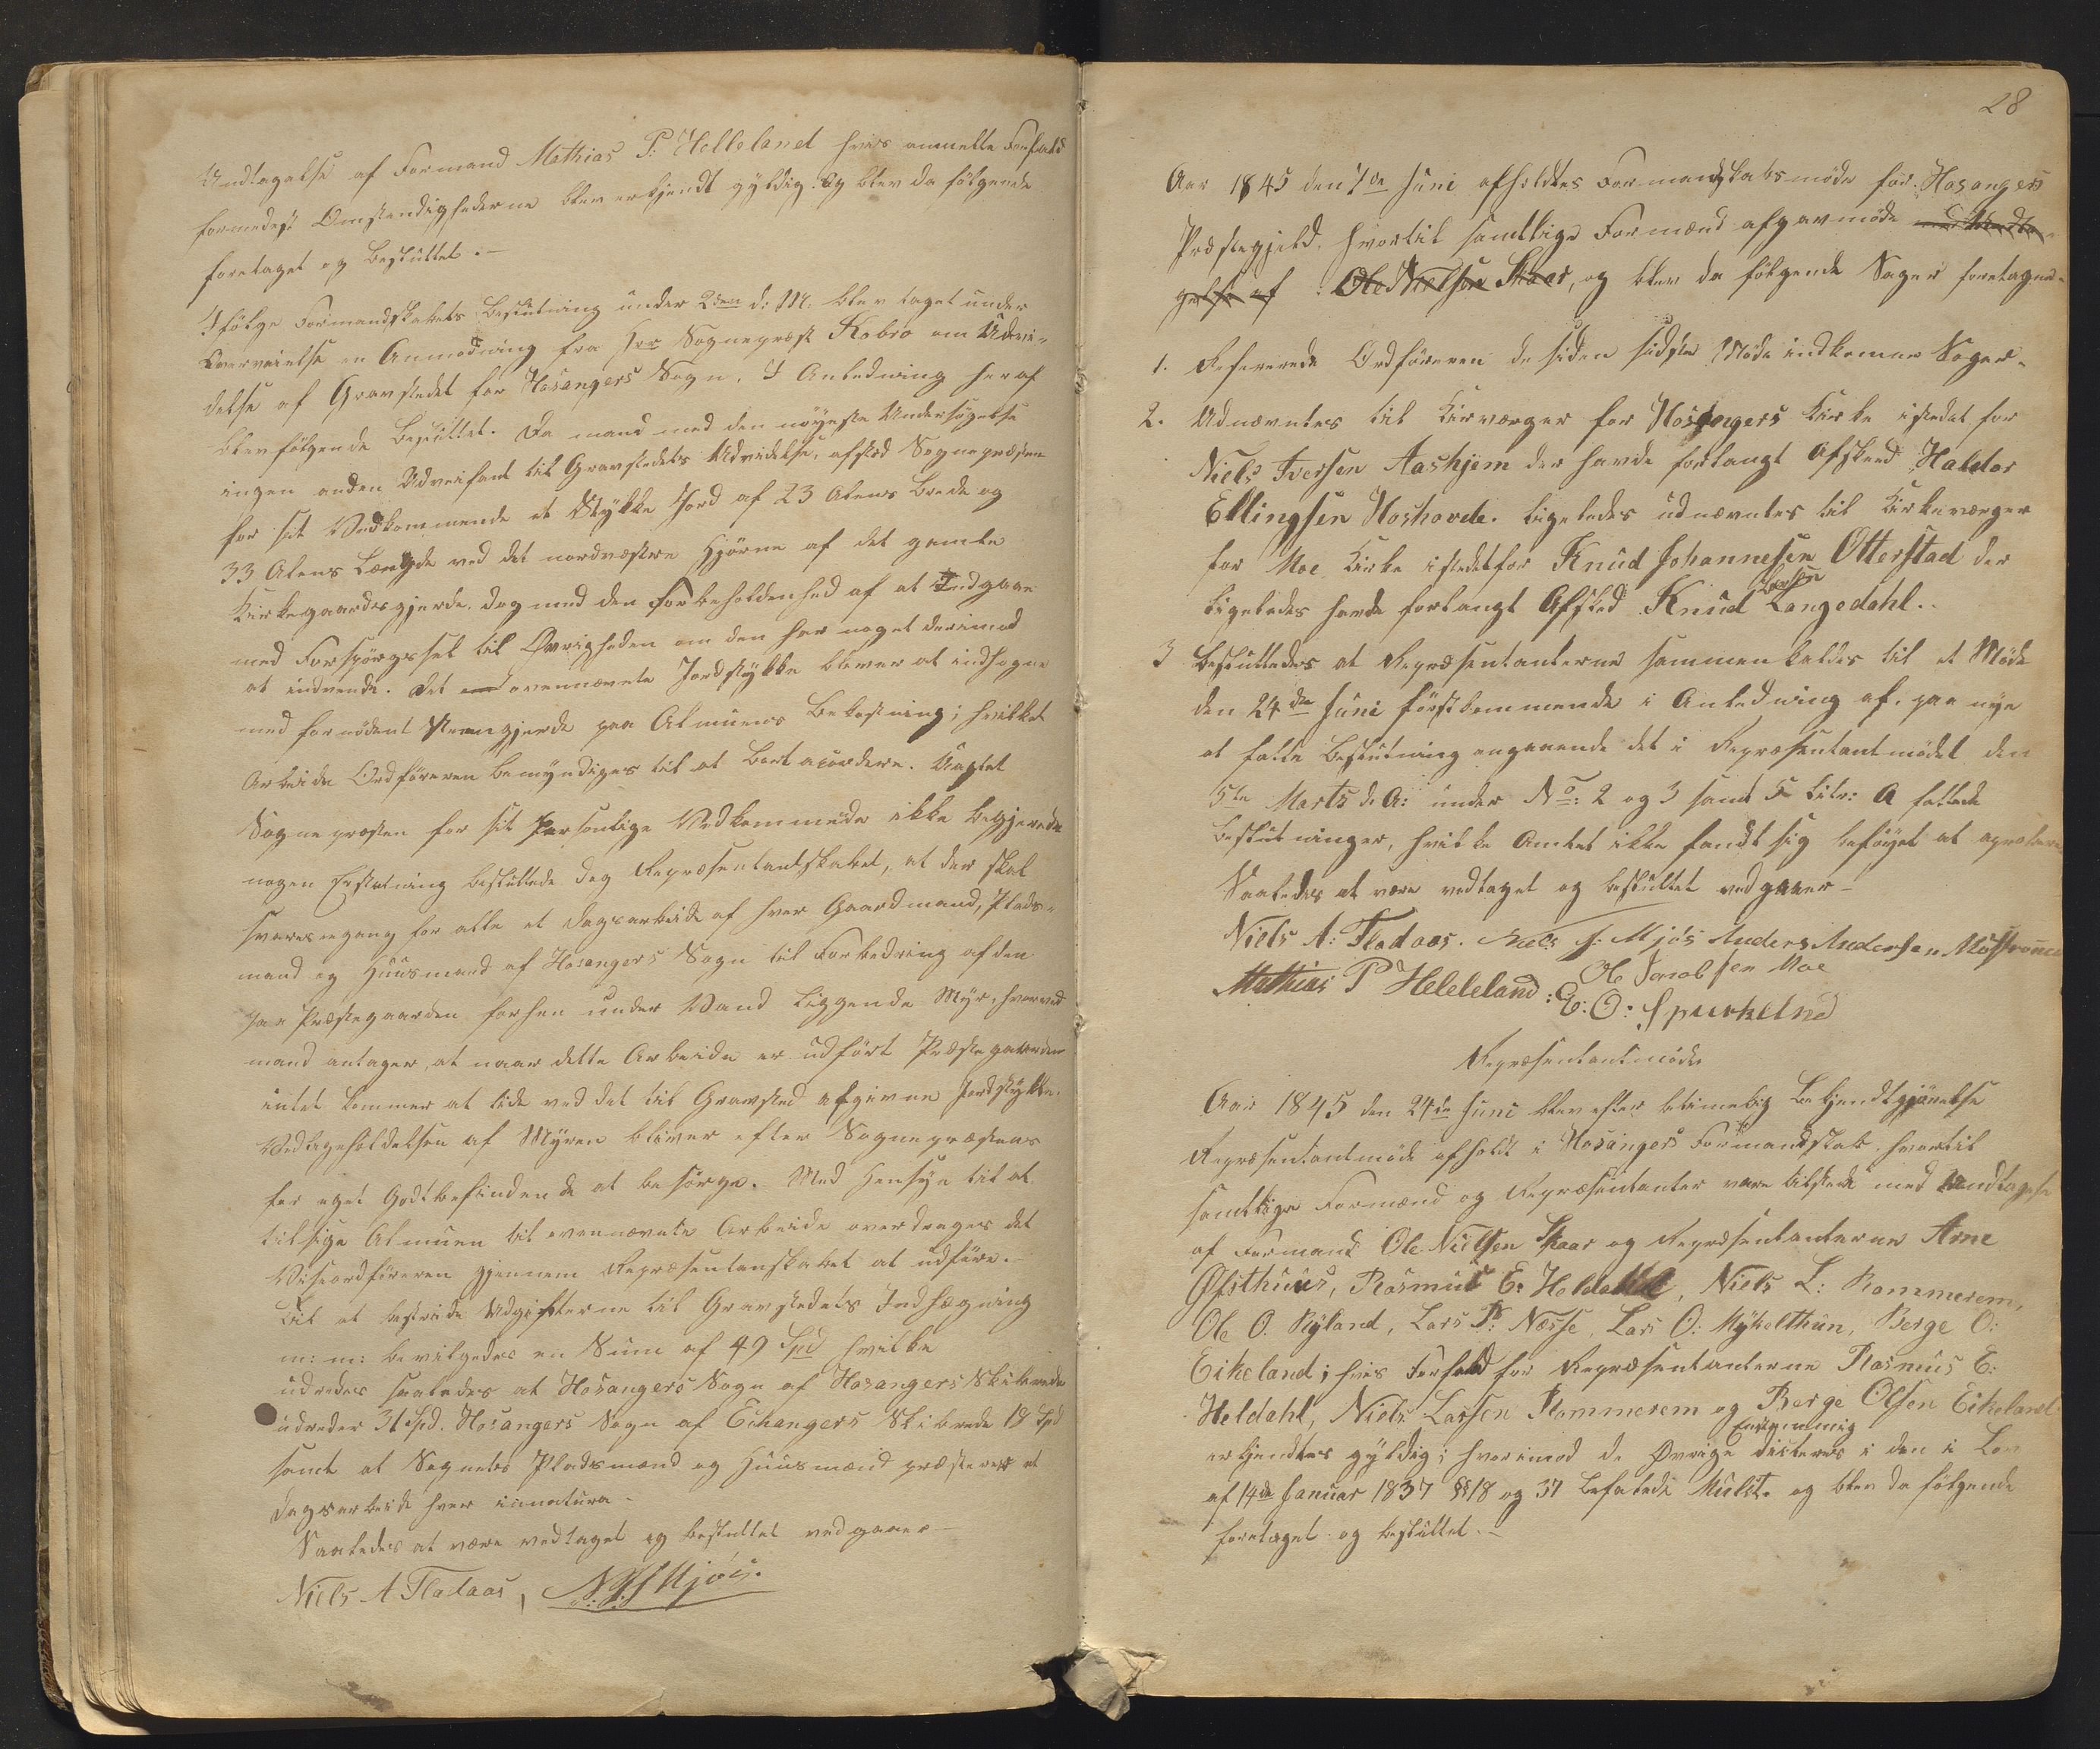 Undtagelse af Formand Mathias P: Helleland hvis anmelte Forfald
formedest Omstændighederne blev erkjendt gyldig. Og blev da følgende
foretaget og besluttet.-
Ifølge Formandskabets Beslutning under 2den d: M. blev taget under
Overveielse en Anmodning fra Hrr Sognepræst Kobro om Udvi-
delse af Gravstedet for Hosangers Sogn. I Anledning heraf
blev følgende besluttet. Da mand med den nøyeste Undersøgelse
ingen anden Udvei fant til Gravstedets Udvidelse, afstod Sognepræsten
for sit Vedkommende et Stykke Jord af 23 Alens Brede og
33 Alens Længde ved det nordvestre Hjørne af det gamle
Kirkegaardsgjerde. dog med den Forbeholdenhed af at Indgaae
med Forspørgssel til Øvrigheden om den har noget derimod
at indvende. Det ovennævnte Jordstykke blever at indhegne
med fornødent Steengjerde paa Almuens Bekostning; hvilket
Arbeide Ordføreren bemyndiges til at bortacordere. Uagtet
Sognepræsten for sit Personlige Vedkommende ikke begjerede
nogen Erstatning besluttede dog Repræsentantskabet, at der skal
svares engang for alle et dagsarbeide af hver Gaardmand, Plads-
mand og Huusmand af Hosangers Sogn til Forbedring af den
paa Præstegaarden forhen under Vand liggende Myr, hvorved
mand antager, at naar dette Arbeide er udført Præstegaarden
intet kommer at lide ved det til Gravsted afgivne Jordstykke.
Vedligeholdelsen af Myren bliver efter Sognepræstens
for eget Godtbefindende at besørge. Med Hensyn til at
tilsige Almuen til ovennævnte Arbeide overdrages det
Viseordføreren gjennem Repræsentanskabet at udføre.-
Til at bestride Udgifterne til Gravstedets Indhægning
m: m: bevilgedes en Sum af 49 Spd hvilke
udredes saaledes at Hosangers Sogn af Hosangers Skibrede
udreder 31 Spd. Hosangers Sogn af Echangers Skibrede 18 Spd
samt at Sognets Pladsmænd og Huusmænd præsterer et
dagsarbeide hver innatura-
Saaledes at være vedtaget og besluttet vedgaaes-
Niels A Fladaas, N. J. Mjøs.
28
Aar 1845 den 7de Juni afholdtes Formandskabsmøde for Hosangers
Præstegjeld. hvortil samtlige Formænd afgav møde med Undta-
gelse af Ole Nielsen Skaar, og blev da følgende Sager foretagne-
1. Refererede Ordføreren de siden sidste Møde indkomne Sager-
2. Udnævntes til Kirværger for Hosangers Kirke istedet for
Niels Iversen Aashjem der havde forlangt Afskeed Haldor
Ellingsen Hoshovde. ligeledes udnævntes til Kirkeværger
for Moe Kirke istedetfor Knud Johannesen Otterstad der
ligeledes havde forlangt Afsked Knud Larsen Langedahl..
3 Besluttedes at Repræsentanterne sammenkaldes til et Møde
den 24de Juni førstkommende i Anledning af, paa nye
at fatte Beslutning angaaende det i Repræsentantmødet den
5te Marts d. A: under No: 2 og 3 samt 5 Litr: A fattede
Beslutninger, hvilke Amtet ikke fandt sig beføyet at
Saaledes at være vedtaget og besluttet vedgaaes-
Niels A: Fladaas. Niels J: Mjøs Anders Andersen
Mathias P Heleleland: Ole Jacobsen Moe
E: O: Spurkelnd
Repræsentantmøde
Aar 1845 den 24de Juni blev efter betimelig Bekjendtgjørelse
Repræsentantmøde afholdt i Hosangers Formandskab. hvortil
samtlige Formænd og Repræsentanter vare tilstede med Undtagelse
af Formand Ole Nielsen Skaar og Repræsentanterne Arne
Øfsthuus, Rasmus E: Heldahl, Niels L: Rommerem,
Ole O. Ryland, Lars P: Nesse, Lars O: Mykelthun, Berge O:
Eikeland; hvis Forfald for Repræsentanterne Rasmus E:
Heldahl, Niels Larsen Rommerem og Berge Olsen Eikeland
erkjendtes gyldig; hvorimod de Øvrige Enstemmig dicteres i den i Lov
af 14de Januar 1837 §§18 og 37 befalede Mulct. og blev da følgende
foretaget og besluttet.-